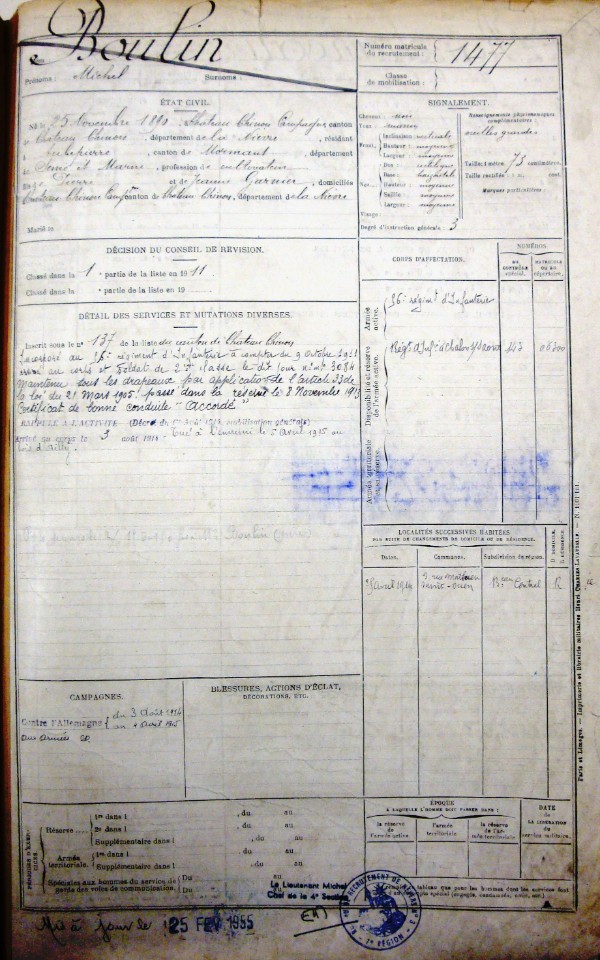 Boulin
Numéro matricule du recrutement : 1477
Prénoms : Michel Surnoms :
Classe de mobilisation :
ÉTAT CIVIL.
Né le 25 Novembre 1890, à Château Chinon Campagne, canton
de Château Chinon, département de la Nièvre, résidant
à canton de Mormant, département
de Seine et Marne, profession de cultivateur
fils de Pierre et de Jeanne Garnier, domiciliés
à Château Chinon Campne canton de Château Chinon, département de la Nièvre
Marié le
SIGNALEMENT.
Cheveux :
Yeux :
Inclinaison verticale
Front Hauteur : moyenne
Largeur : moyenne
Nez Dos : rectiligne
Base : horizontale
Hauteur : moyenne
Saillie : moyenne
Largeur : moyenne
Visage :
Renseignements physionomiques complémentaires :
oreilles grandes
Taille : 1 mètre 73 centimètres.
Taille rectifiée :
Marques particulières :
Degré d'instruction générale : 3
DÉCISION DU CONSEIL DE RÉVISION.
Classé dans la 1 e partie de la liste en 1911
Classé dans la e partie de la liste en 19
DÉTAIL DES SERVICES ET MUTATIONS DIVERSES.
Inscrit sous le n° 137 de la liste du canton de Château Chinon
Incorporé au régiment d'Infanterie à compter du 9 octobre 1911
arrivé au corps et soldat de 2e classe le dit jour n° mle 3084
Maintenu sous les drapeaux par application de l'article 33 de
la loi du 21 Mars 1905, passé dans la réserve le 8 Novembre 1913
Certificat de bonne conduite "Accordé"
RAPPELÉ A L'ACTIVITÉ (Décret du 1er août 1914 mobilisation générale)
Arrivé au corps le 3 août 1914 - Tué à l'ennemi le 5 Avril 1915 au
bois d'Ailly
Boulin
CORPS D'AFFECTATION.
NUMÉROS
AU CONTRÔLE SPÉCIAL.
MATRICULE OU AU RÉPERTOIRE.
Armée active.
régiment d'Infanterie
Disponibilité et réserve de l'armée active.
Régt d'Infie de Chalon s/Saone 143
Armée territoriale et sa réserve.
LOCALITÉS SUCCESSIVES HABITÉES
PAR SUITE DE CHANGEMENTS DE DOMICILE OU DE RÉSIDENCE.
Dates. Communes. Subdivision de région. D. DOMICILE. R. RÉSIDENCE.
Avril 1914 Saint-Ouen Central R
CAMPAGNES.
Contre l'Allemagne du 3 Août 1914
au 4 Avril 1915
aux armées
BLESSURES, ACTIONS D'ÉCLAT,
DÉCORATIONS, ETC.
PÉRIODES D'EXERCICES
Réserve 1re dans l , du au
2e dans l , du au
Supplémentaire dans l , du au
Armée territoriale. 1re dans l , du au
Supplémentaire dans l , du au
Spéciales aux hommes du service de garde des voies de communication. Du au
Du au
ÉPOQUE
À LAQUELLE L'HOMME DOIT PASSER DANS :
la réserve de l'armée active.
l'armée territoriale.
la réserve de l'armée territoriale
DATE
de
LA LIBÉRATION
du service militaire.
Le Lieutenant Michel
Chef de la 4e Section
Mis à jour le 25 FEV 1955
RECRUTEMENT DE
7e RÉGION
Paris et Limoges. — Imprimerie et librairie militaires Henri CHARLES-LAVAUZELLE.